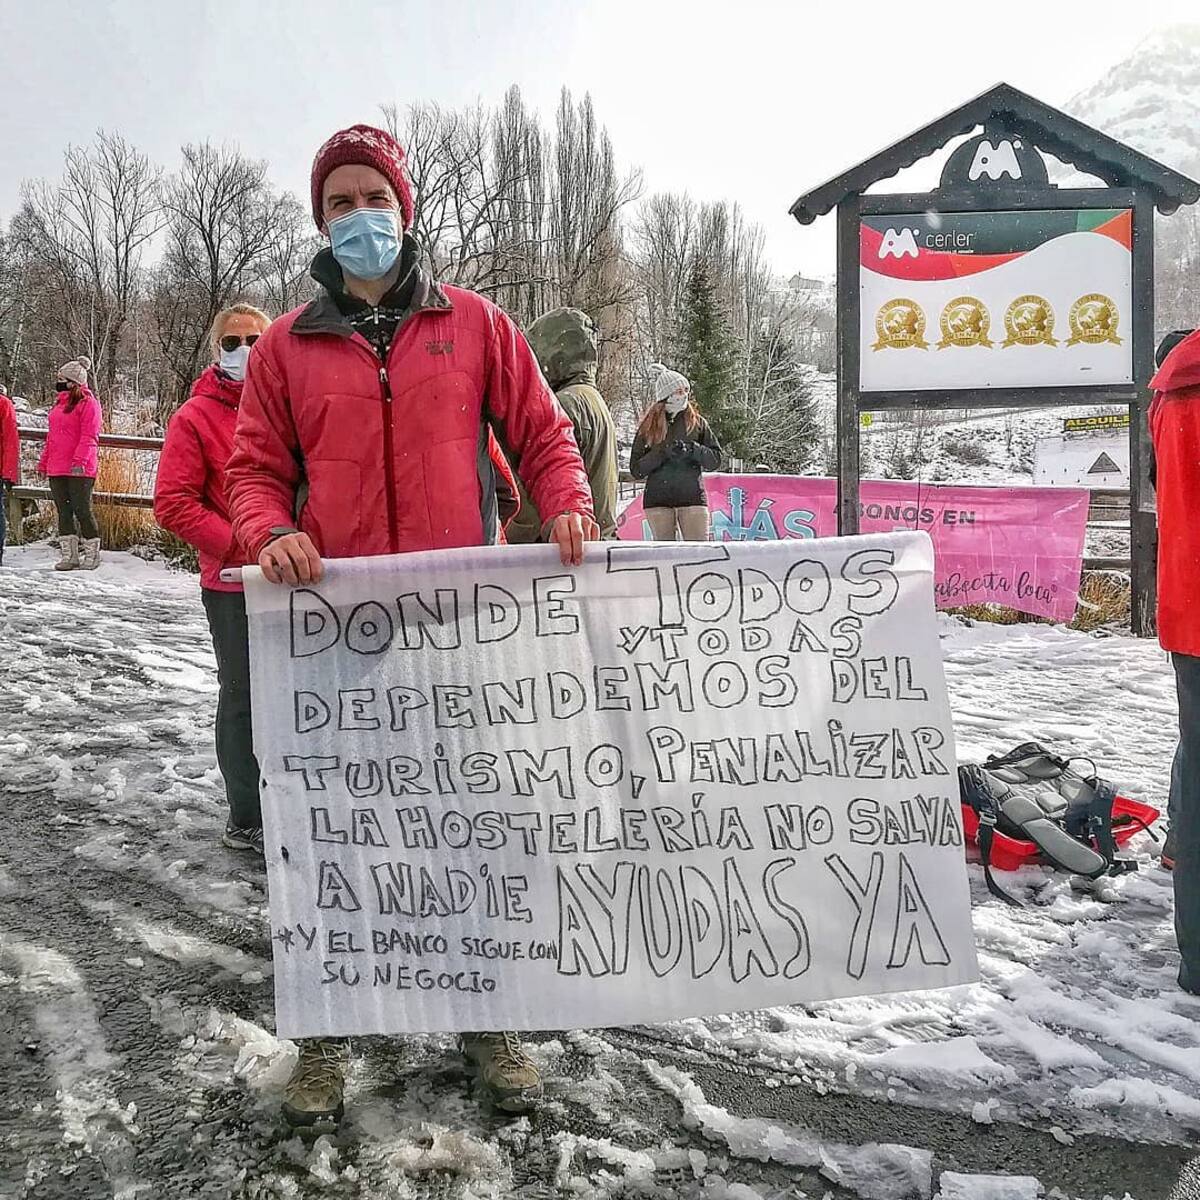 DONDE TODOS
Y TODAS
DEPENDEMOS DEL
TURISMO, PENALIZAR
LA HOSTELERÍA NO SALVA
A NADIE AYUDAS YA
*Y EL BANCO SIGUE CON
SU NEGOCIO
cerler
ALQUILE
ABONOS EN